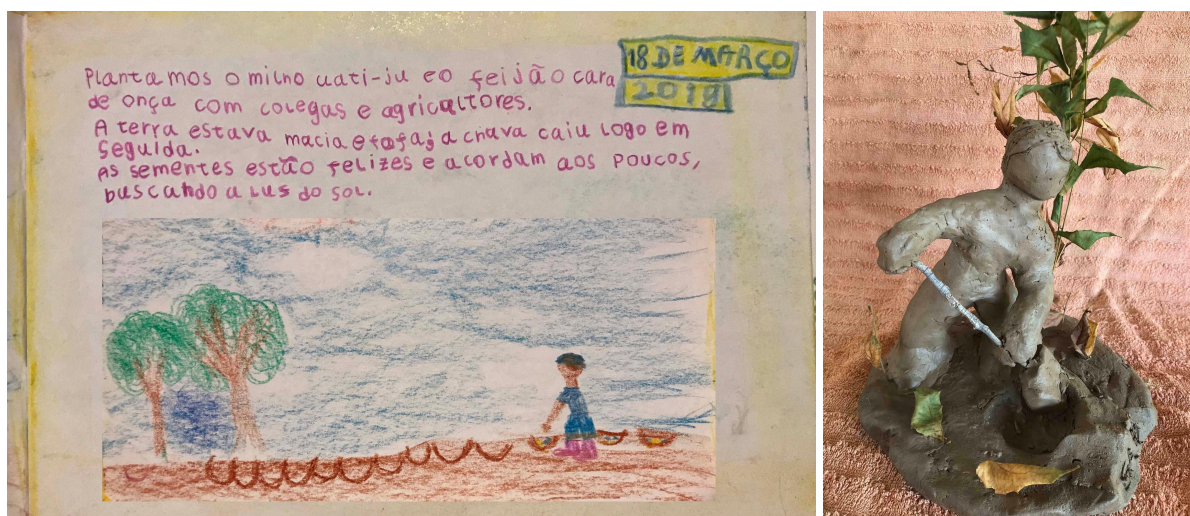 Plantamos o milho uati-ju e o feijão cara
de onça com colegas e agricultores.
A terra estava macia e fofa, a chuva caiu logo em
seguida.
As sementes estão felizes e acordam aos poucos,
buscando a lus do sol.
18 DE MARÇO
2019